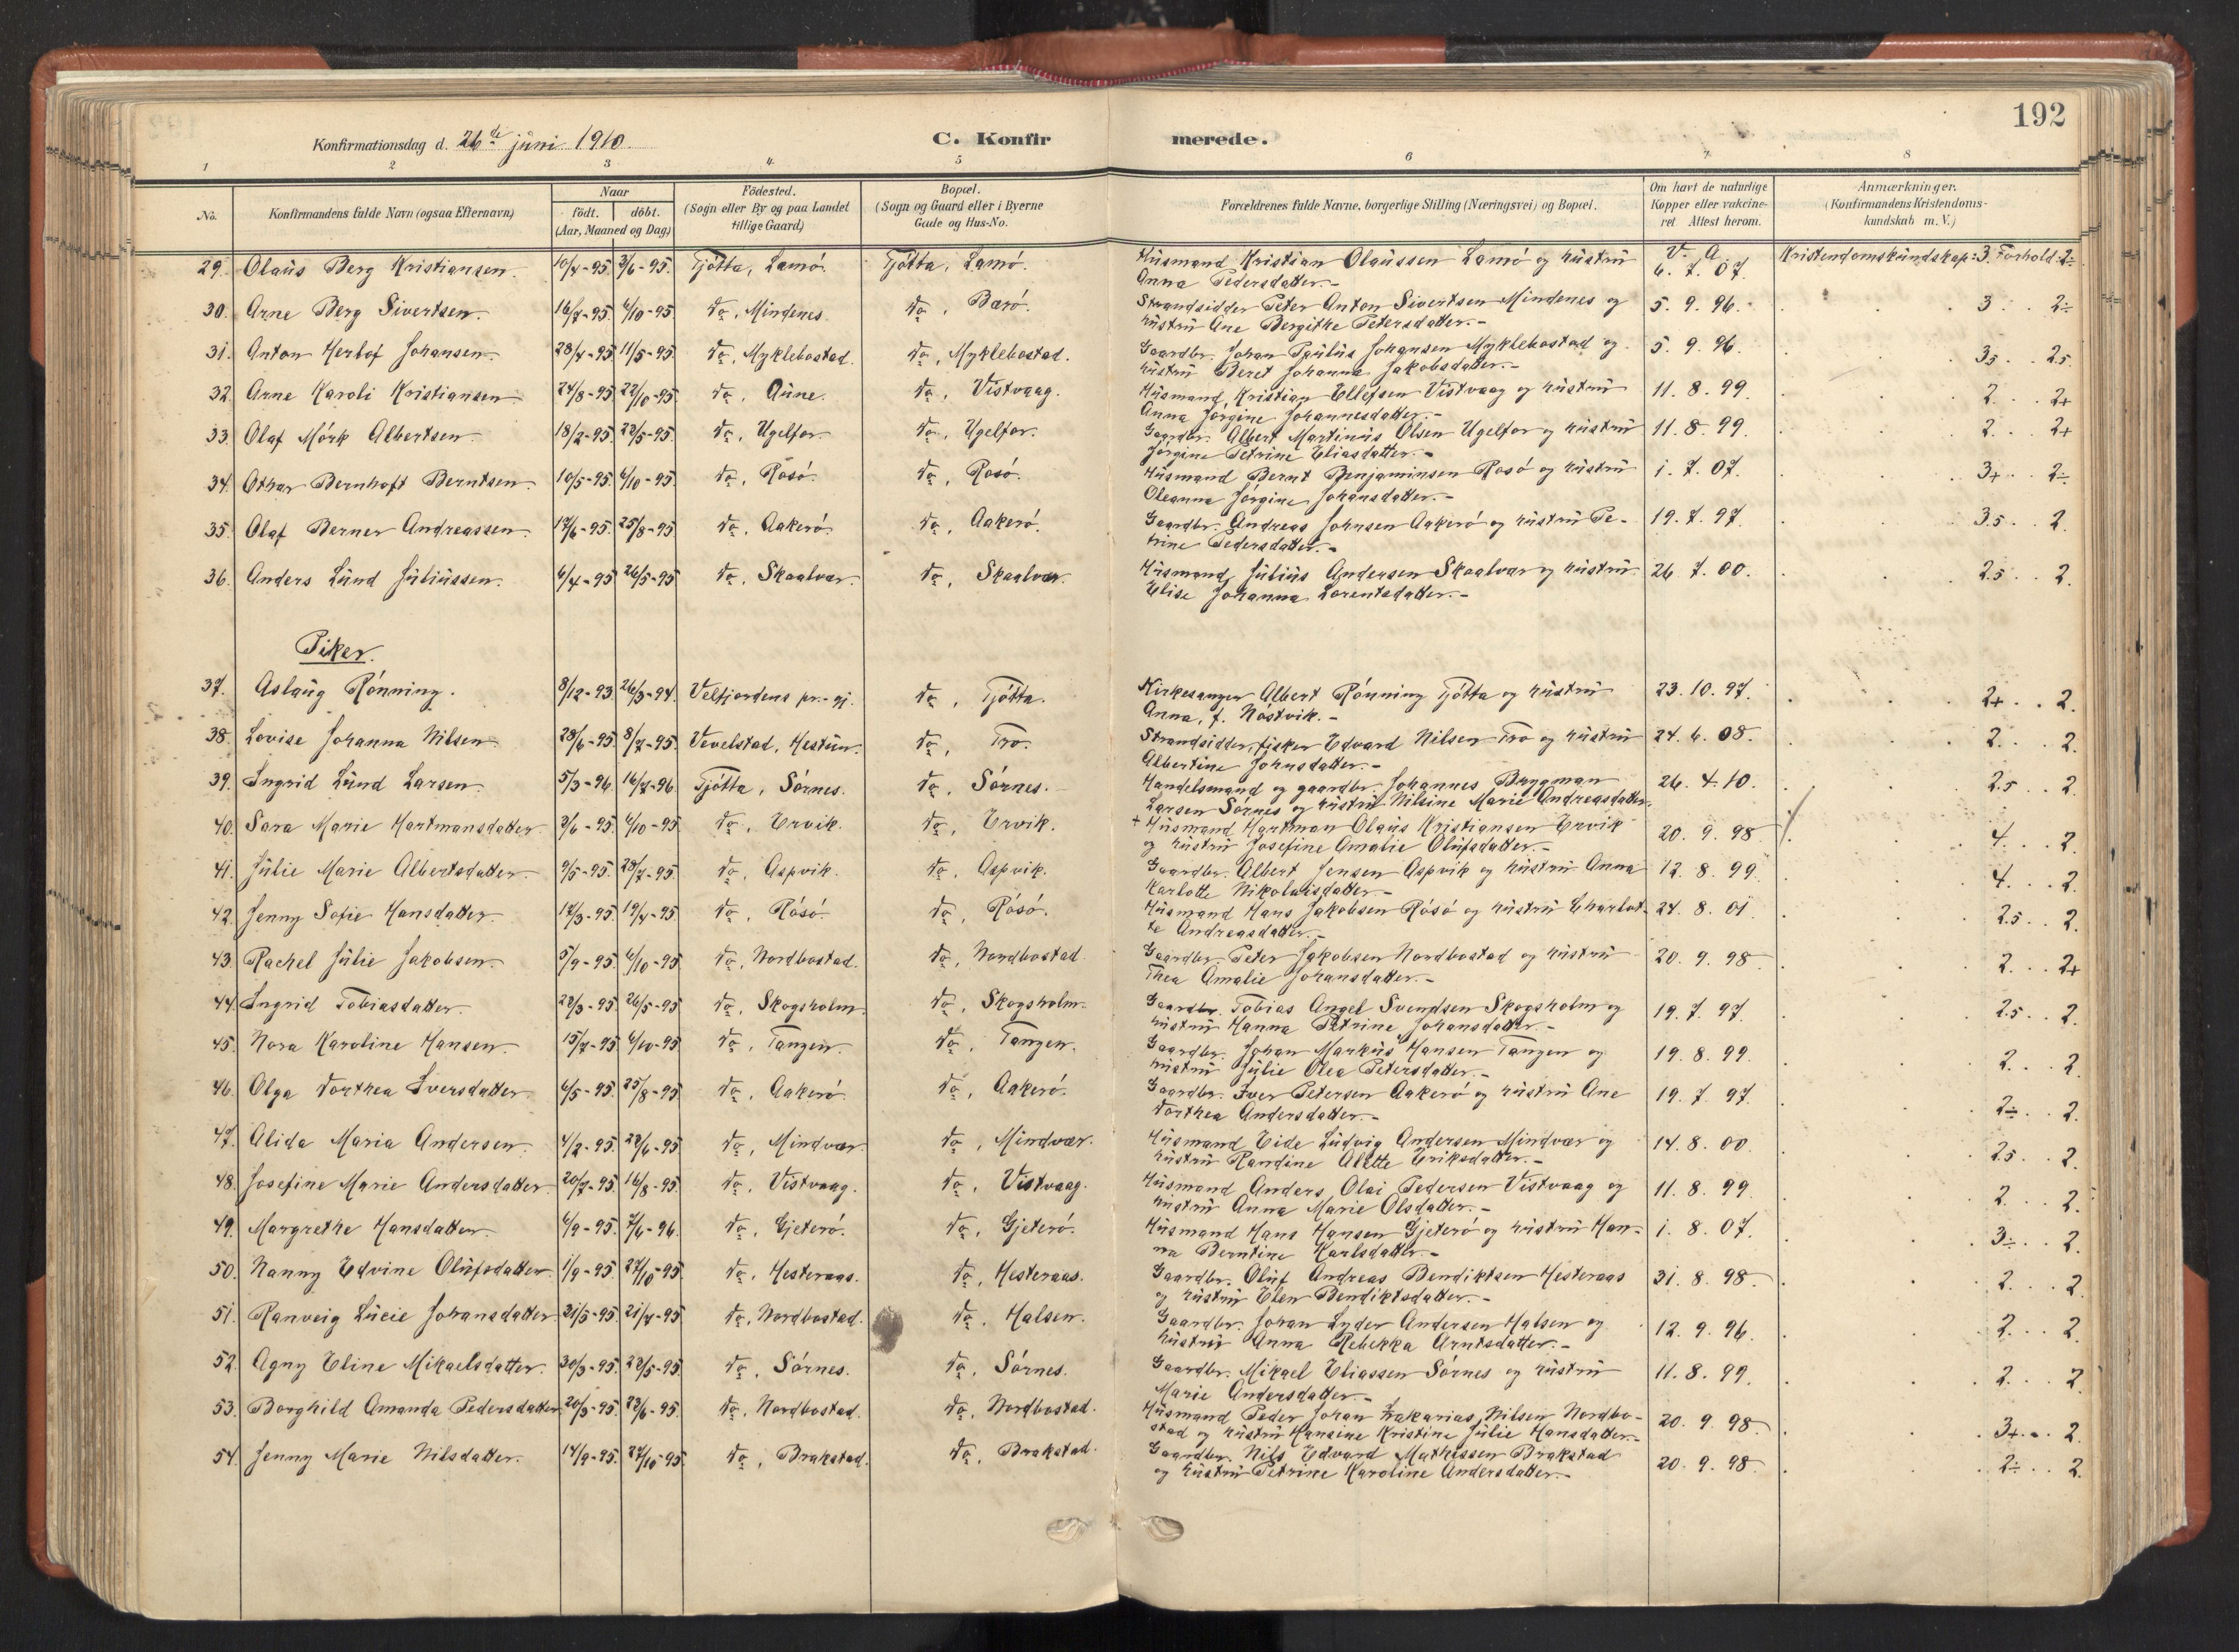 192
Konfirmationsdag d. 26de juni 1910. C. Konfirmerede.
1 2 3 4 5 6 7 8
No. Konfirmandens fulde Navn (ogsaa Efternavn) Naar födt. döbt. (Aar, Maaned og Dag) Födested. (Sogn eller By og paa Landet tillige Gaard) Bopæl. (Sogn og Gaard eller i Byerne Gade og Hus-No. Forældrenes fulde Navne, borgerlige Stilling (Næringsvei) og Bopæl. Om havt de naturlige Kopper eller vakcineret. Attest herom. Anmærkninger. (Konfirmandens Kristendomskundskab m. V.)
29. Olaus Berg Kristiansen. 10/4-95 3/6-95. Tjötta, Lamö. Tjötta, Lamö. Husmand Kristian Olaussen Lamö og hustru V. A. 6. 7. 07. Kristendomskundskap: 3. Forhold: 2÷
Anna Pedersdatter.-
30. Arne Berg Sivertsen. 16/7-95 6/10-95. do, Mindenes. do, Bærö. Strandsidder Peter Anton Sivertsen Mindenes og 5. 9. 96. 3 2÷
hustru Ane Bergithe Petersdatter.-
31. Anton Herlof Johansen. 28/4-95 11/5-95. do, Myklebostad. do, Myklebostad. Gaardbr. Johan Paulus Johansen Myklebostad og 5. 9. 96. 3.5 2.5
hustru Beret Johanna Jakobsdatter.-
32. Arne Karoli Kristiansen. 24/8-95 22/10-95. do, Aune. do, Vistvaag. Husmand Kristian Ellefsen Vistvaag og hustru 11. 8. 99. 2. 2+
Anna Jörgine Johannesdatter.-
33. Olaf Mörk Albertsen. 18/2-95 22/5-95. do, Ugelfor. do, Ugelfor. Gaardbr. Albert Martinus Olsen Ugelfor og hustru 11. 8. 99. 2. 2+
Jörgine Petrine Eliasdatter.-
34. Othar Bernhoft Berntsen. 10/5-95 6/10-95. do, Rosö. do, Rosö. Husmand Bernt Benjaminsen Rosö og hustru 1. 7. 07. 3+ 2÷
Oleanna Jörgine Johansdatter.-
35. Olaf Berner Andreassen. 17/6-95. 25/8-95 do, Aakerö. do, Aakerö. Gaardbr. Andreas Johnsen Aakerö og hustru Pe- 19. 7. 97. 3.5 2.
trine Pedersdatter.-
36. Anders Lund Juliussen. 6/4-95 26/5-95 do, Skaalvær. do, Skaalvær. Husmand Julius Andersen Skaalvær og hustru 26 7. 00. 2.5 2.
Elise Johanna Lorentsdatter.-
Piker.
37. Aslaug Rönning. 8/12-93. 26/3-94. Velfjordens pr.-gj. do, Tjötta. Kirkesanger Albert Rönning Tjötta og hustru 23. 10. 97. 2+ 2.
Anna, f. Nöstvik.-
38. Lovise Johanna Nilsen. 28/6-95 8/7-95. Vevelstad, Hestun. do, Tro. Strandsidder, fisker Edvard Nilsen Tro og hustru 24. 6. 08. 2. 2.
Albertine Johnsdatter.-
39. Ingrid Lund Larsen. 5/3-96 16/7-96 Tjötta, Sörnes. do, Sörnes. Handelsmand og gaardbr. Johannes Brygman 26. 4. 10. 2.5 2.
Larsen Sörnes og hustru Nilsine Marie Andreasdatter.
40. Sara Marie Hartmansdatter. 2/6-95 6/10-95. do, Ervik. do, Ervik. + Husmand Hartman Olaus Kristiansen Ervik 20. 9. 98 4. 2.
og hustru Josefine Amalie Olufsdatter.-
41. Julie Marie Albertsdatter. 9/5-95. 28/7-95. do, Aspvik. do, Aspvik. Gaardbr. Albert Jensen Aspvik og hustru Anna 12. 8. 99. 4. 2.
Karlotte Nikolaisdatter.-
42. Jenny Sofie Hansdatter. 17/3-95. 19/4-95. do, Rösö. do, Rösö. Husmand Hans Jakobsen Rösö og hustru Charlot- 24. 8. 01 2.5 2.
te Andreasdatter.-
43. Rachel Julie Jakobsen. 5/9-95. 6/10-95. do, Nordbostad. do, Nordbostad. Gaardbr. Peter Jakobsen Nordbostad og hustru 20. 9. 98 2. 2+
Thea Amalie Johansdatter.-
44. Ingrid Tobiasdatter. 22/3-95. 26/5-95 do, Skogsholm. do, Skogsholm. Gaardbr. Tobias Angel Svendsen Skogsholm og 19. 7. 97. 2.5 2.
hustru Hanna Petrine Johansdatter.-
45. Nora Karoline Hansen. 15/7-95 6/10-95 do, Tangen. do, Tangen. Gaardbr. Johan Markus Hansen Tangen og 19. 8. 99. 2. 2.
hustru Julie Olea Petersdatter.-
46. Olga Dorthea Iversdatter. 6/5-95. 25/8-95 do, Aakerö. do, Aakerö. Gaardbr. Iver Petersen Aakerö og hustru Ane 19. 7. 97. 2÷ 2.
Dorthea Andersdatter.-
47. Alida Maria Andersen. 4/2-95. 22/6-95 do, Mindvær. do, Mindvær. Husmand Eide Ludvig Andersen Mindvær og 14. 8. 00. 2.5 2.
hustru Randine Alette Eriksdatter.-
48. Josefine Marie Andersdatter. 20/7-95. 16/8-95. do, Vistvaag. do, Vistvaag. Husmand Anders Olai Pedersen Vistvaag og 11. 8. 99. 2. 2.
hustru Anna Marie Olsdatter.-
49. Margrethe Hansdatter. 6/9-95. 7/6-96. do, Gjeterö. do, Gjeterö. Husmand Hans Hansen Gjeterö og hustru Han- 1. 8. 07. 3÷ 2.
na Berntine Karlsdatter.-
50. Nanny Edvine Olufsdatter. 1/9-95. 27/10-95 do, Hesteraas. do, Hesteraas. Gaardbr. Oluf Andreas Bendiktsen Hesteraas 31. 8. 98. 2. 2.
og hustru Elen Bendiktsdatter.-
51. Ranveig Lucie Johansdatter. 31/5-95. 21/7-95 do, Nordbostad. do, Halsen. Gaardbr. Johan Lyder Andersen Halsen og 12. 9. 96. 2. 2.
hustru Anna Rebekka Arntsdatter.-
52. Agny Eline Mikaelsdatter. 30/3-95. 22/5-95. do, Sörnes. do, Sörnes. Gaardbr. Mikael Eliassen Sörnes og hustru 11. 8. 99. 2. 2.
Marie Andersdatter.-
53. Borghild Amanda Pedersdatter. 20/3-95. 23/6-95. do, Nordbostad. do, Nordbostad. Husmand Peder Johan Zakarias Nilsen Nordbo- 20. 9. 98. 3+ 2.
stad og hustru Hansene Kristine Julie Hansdatter.-
54. Jenny Marie Nilsdatter. 14/9-95. 27/10-95. do, Brakstad. do, Brakstad. Gaardbr. Nils Edvard Mathissen Brakstad 20. 9. 98. 2÷ 2.
og hustru Petrine Karoline Andersdatter.-